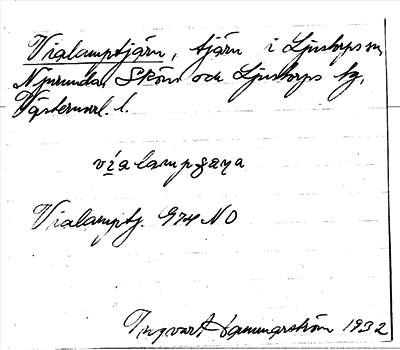 Vialamptjärn, tjärn i Ljustorps sn,
Njurunda, Sköns och Ljustorps tg,
Västernorrl. l.
vialampɟæɳa
Vialamptj. G74 NO
Ingvart Hammarström 1932